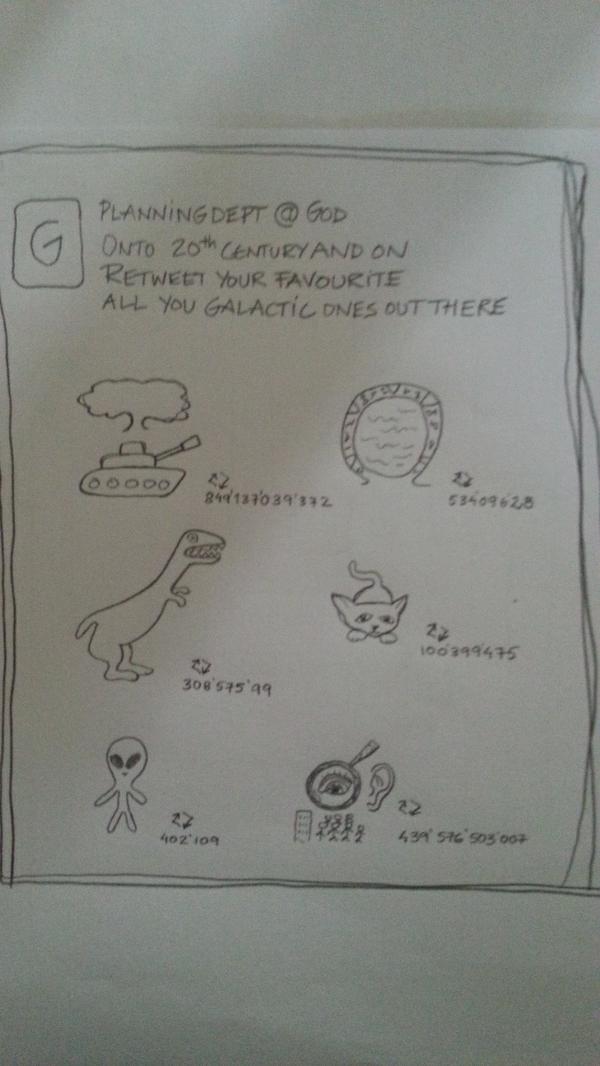 G
PLANNING DEPT @ GOD
ONTO 20th CENTURY AND ON
RETWEET YOUR FAVOURITE
ALL YOU GALACTIC ONES OUT THERE
849'137'039'372
534'096'28
308'575'99
100'399'475
402'109
439'576'503'007